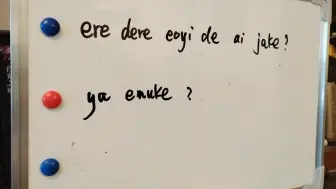 ere dere eoyi de ai jake?
ya enuke ?